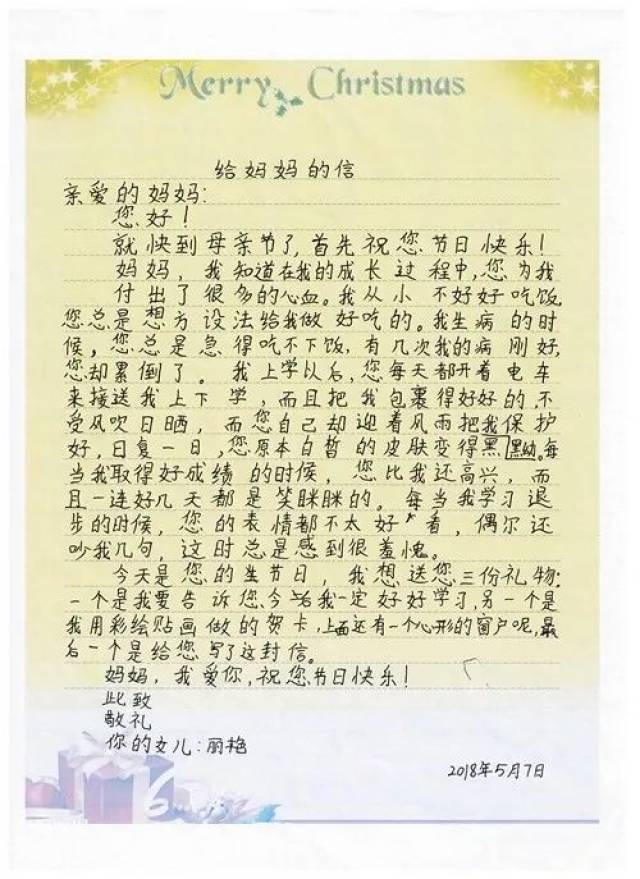 Merry Christmas
给妈妈的信
亲爱的妈妈:
您好!
就快到母亲节了,首先祝您节日快乐!
妈妈,我知道在我的成长过程中,您为我
付出了很多的心血。我从小不好好吃饭
您总是想方设法给我做好吃的。我生病的时
候,您总是急得吃不下饭,有几次我的病刚好,
您却累倒了。我上学以后,您每天都开着电车
来接送我上下学,而且把我包裹得好好的,不
受风吹日晒,而您自己却迎着风雨把我保护
好,日复一日,您原本白皙的皮肤变得黑黝黝。每
当我取得好成绩的时候,您比我还高兴,而
且一连好几天都是笑眯眯的。每当我学习退
步的时候,您的表情都不太好看,偶尔还
吵我几句,这时总是感到很羞愧。
今天是您的生节日,我想送您三份礼物:
一个是我要告诉您,今后我一定好好学习,另一个是
我用彩绘贴画做的贺卡,上面还有一个心形的窗户呢,最
后一个是给您写了这封信。
妈妈,我爱你,祝您节日快乐!
此致
敬礼
你的女儿:丽艳
2018年5月7日
6